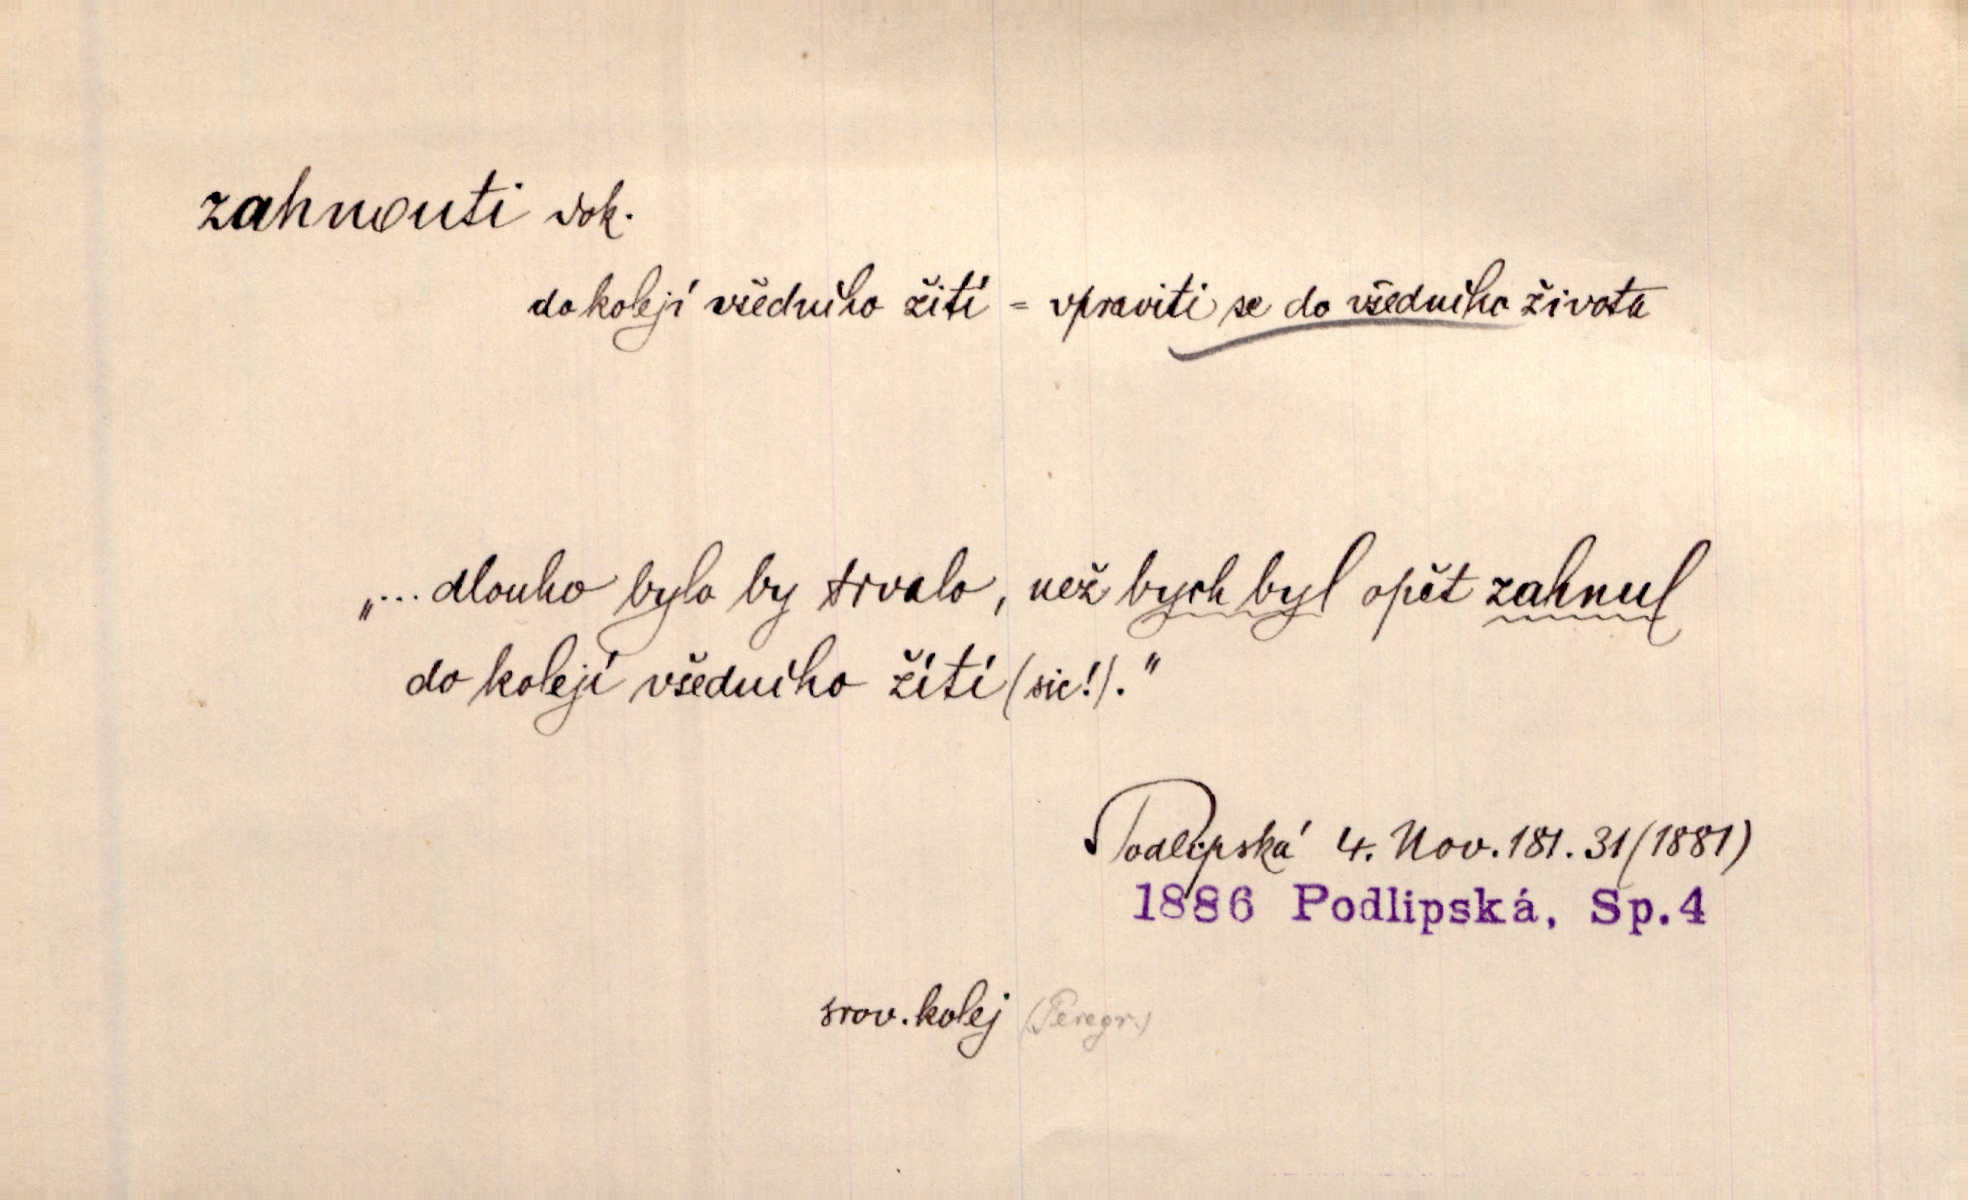 zahnouti dok.
do kolejí všedního žití = vpraviti se do všedního života
„... dlouho bylo by trvalo, než bych byl opět zahnul
do kolejí všedního žítí (sic!)."
Podlipská 4. Nov. 181. 31 (1881)
1886 Podlipská, Sp.4
srov. kolej (Peregr.)